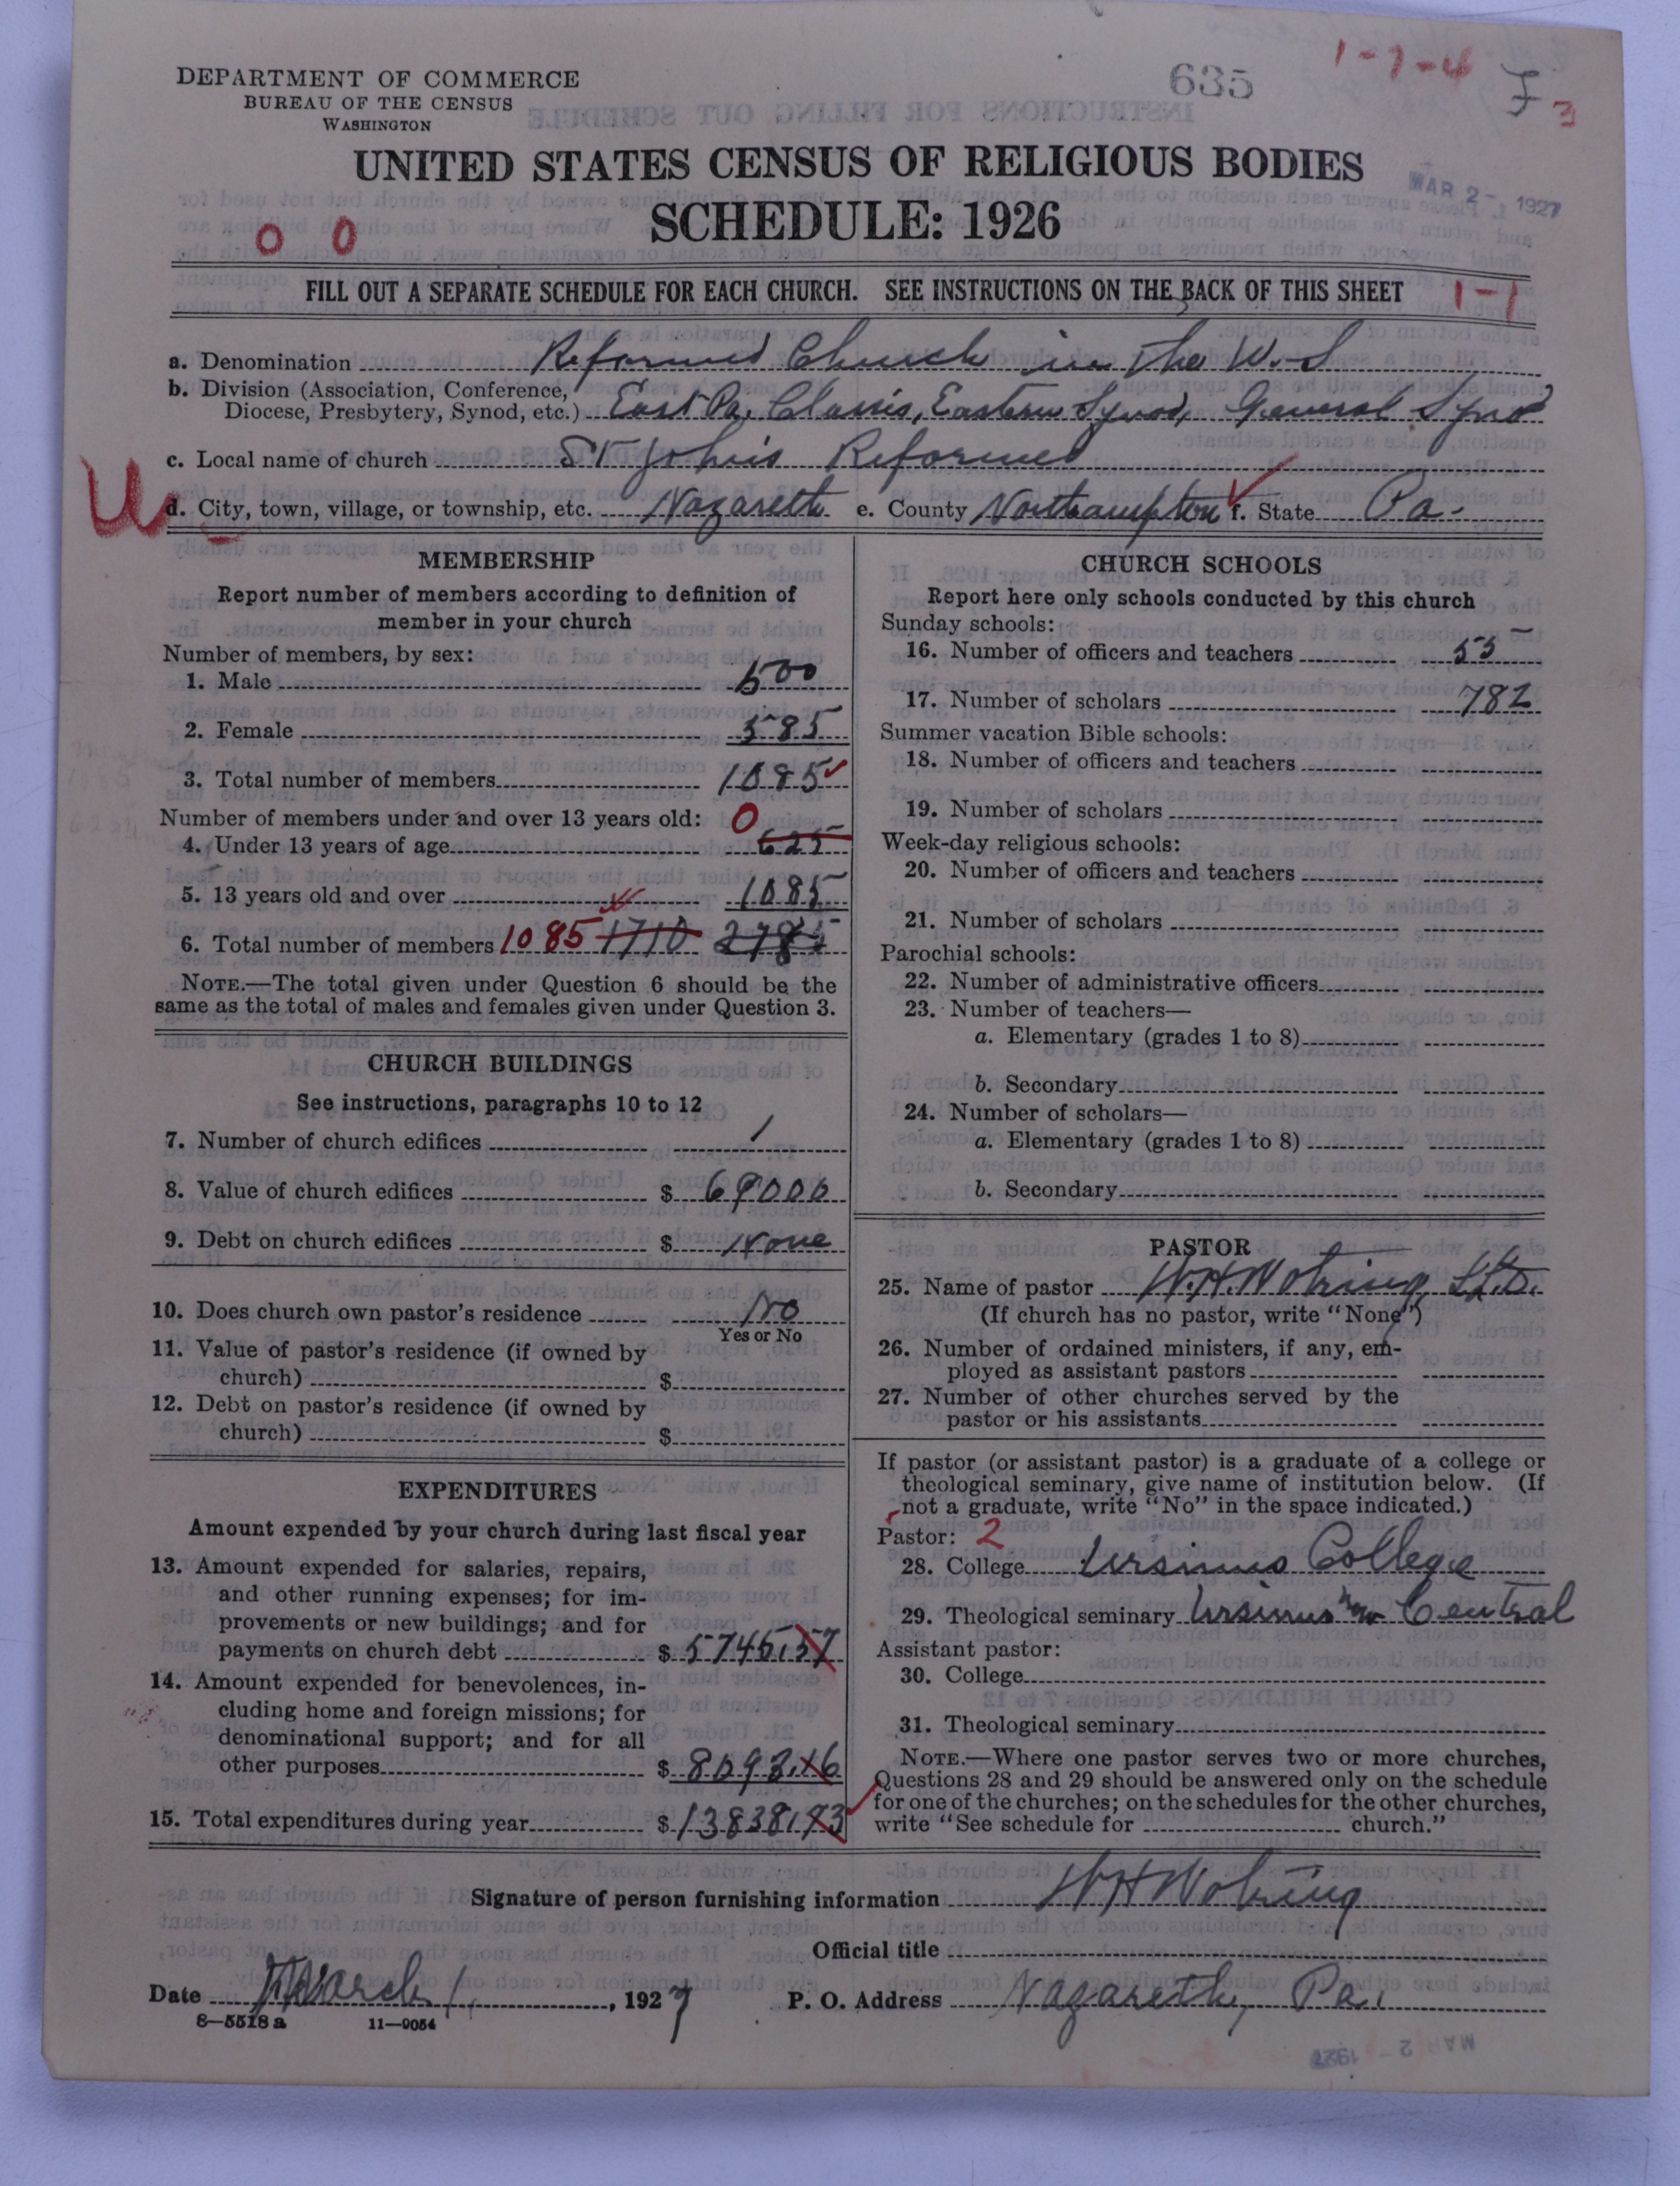 DEPARTMENT OF COMMERCE
BUREAU OF THE CENSUS
WASHINGTON
635
1-7-4
3
UNITED STATES CENSUS OF RELIGIOUS BODIES
MAR 2 - 1927
SCHEDULE: 1926
0 0
FILL OUT A SEPARATE SCHEDULE FOR EACH CHURCH. SEE INSTRUCTIONS ON THE BACK OF THIS SHEET
1-1
a. Denomination Reformed Church in the U.S
b. Division (Association, Conference,
Diocese, Presbytery, Synod, etc.) East Pa. Classis, Eastern Synod, General Synod
c. Local name of church St John's Reformed
U
d. City, town, village, or township, etc. Nazareth e. County Northampton f. State Pa.
MEMBERSHIP
Report number of members according to definition of
member in your church
Number of members, by sex:
1. Male 500
2. Female 585
3. Total number of members 1085
Number of members under and over 13 years old: 0
4. Under 13 years of age 625
5. 13 years old and over 1085
6. Total number of members 1085 1710 2785
NOTE.—The total given under Question 6 should be the
same as the total of males and females given under Question 3.
CHURCH BUILDINGS
See instructions, paragraphs 10 to 12
7. Number of church edifices 1
8. Value of church edifices $ 69000
9. Debt on church edifices $ None
10. Does church own pastor's residence No
Yes or No
11. Value of pastor's residence (if owned by
church) $
12. Debt on pastor's residence (if owned by
church) $
EXPENDITURES
Amount expended by your church during last fiscal year
13. Amount expended for salaries, repairs,
and other running expenses; for im-
provements or new buildings; and for
payments on church debt $ 5745.57
14. Amount expended for benevolences, in-
cluding home and foreign missions; for
denominational support; and for all
other purposes $ 8093.16
15. Total expenditures during year $ 13838.73
CHURCH SCHOOLS
Report here only schools conducted by this church
Sunday schools:
16. Number of officers and teachers 55
17. Number of scholars 782
Summer vacation Bible schools:
18. Number of officers and teachers
19. Number of scholars
Week-day religious schools:
20. Number of officers and teachers
21. Number of scholars
Parochial schools:
22. Number of administrative officers
23. Number of teachers—
a. Elementary (grades 1 to 8)
b. Secondary
24. Number of scholars—
a. Elementary (grades 1 to 8)
b. Secondary
PASTOR
25. Name of pastor W.H. Wotring
(If church has no pastor, write "None")
26. Number of ordained ministers, if any, em-
ployed as assistant pastors
27. Number of other churches served by the
pastor or his assistants
If pastor (or assistant pastor) is a graduate of a college or
theological seminary, give name of institution below. (If
not a graduate, write "No" in the space indicated.)
Pastor: 2
28. College Ursinus College
29. Theological seminary Ursinus now Central
Assistant pastor:
30. College
31. Theological seminary
NOTE.—Where one pastor serves two or more churches,
Questions 28 and 29 should be answered only on the schedule
for one of the churches; on the schedules for the other churches,
write "See schedule for church."
Signature of person furnishing information W H Wotring
Official title
Date March 1, 1927 P. O. Address Nazareth, Pa.
8—5518 a 11—9054